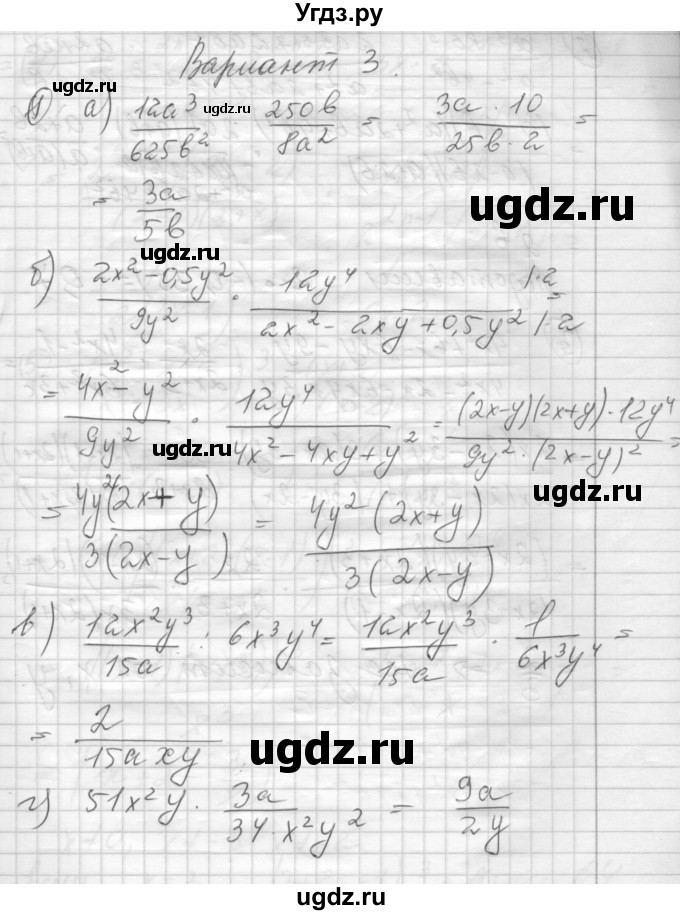 Угдз.ру
Вариант 3.
1) а) 12a³/625b² · 250b/8a² = 3a · 10/25b · 2 =
ugdz.ru ugdz.ru
= 3a/5b
ugdz.ru
ugdz.ru
б) 2x² - 0,5y²/9y² · 12y⁴/2x² - 2xy + 0,5y² |·2 |·2 =
= 4x² - y²/9y² · 12y⁴/4x² - 4xy + y² = (2x-y)(2x+y)·12y⁴/9y²·(2x-y)² =
ugdz.ru
ugdz.ru
= 4y²(2x+y)/3(2x-y) = 4y²(2x+y)/3(2x-y)
ugdz.ru
в) 12x²y³/15a : 6x³y⁴ = 12x²y³/15a · 1/6x³y⁴ =
ugdz.ru ugdz.ru
= 2/15axy
ugdz.ru
г) 51x²y · 3a/34·x²y² = 9a/2y
ugdz.ru
ugdz.ru